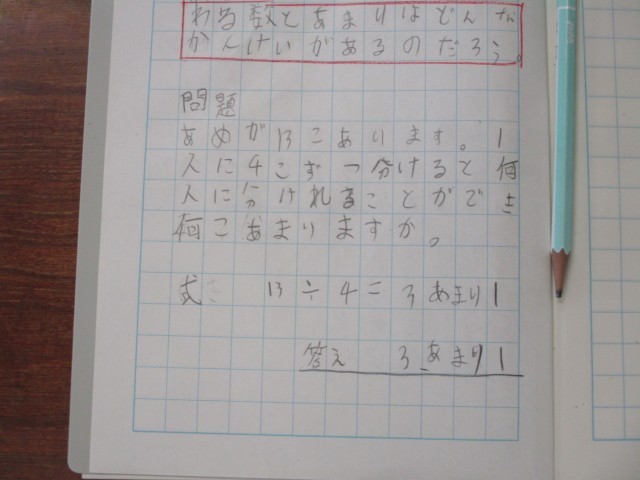 わる数とあまりはどんな
かんけいがあるのだろう。
問題
あめが13こあります。1
人に4こずつ分けると何
人に分けれることができ
何こあまりますか。
式 13÷4=3あまり1
答え 3あまり1